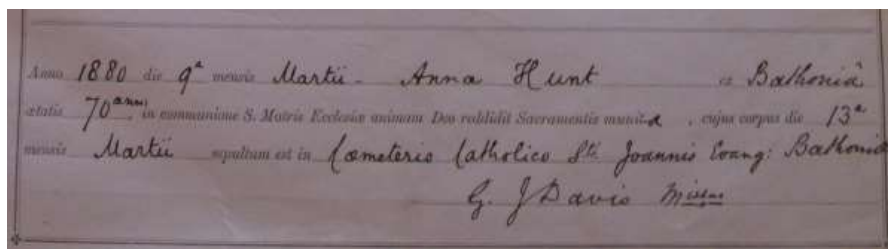 Anno 1880 die 9ª mensis Martii - Anna Hunt ex Bathoniâ
ætatis 70 ann. in communione S. Matris Ecclesiæ animam Deo reddidit Sacramentis munita, cujus corpus die 13ª
mensis Martii sepultum est in Cœmeterio Catholico Sti Joannis Evang: Bathoniæ
G. J Davis Missus